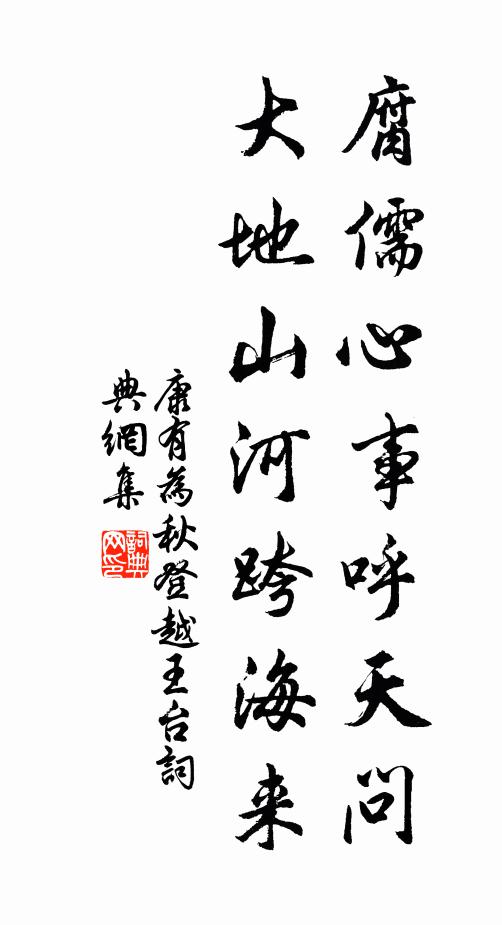 腐儒心事呼天問
大地山河跨海来
康有為秋登越王台詞
典網集
詞典
网印